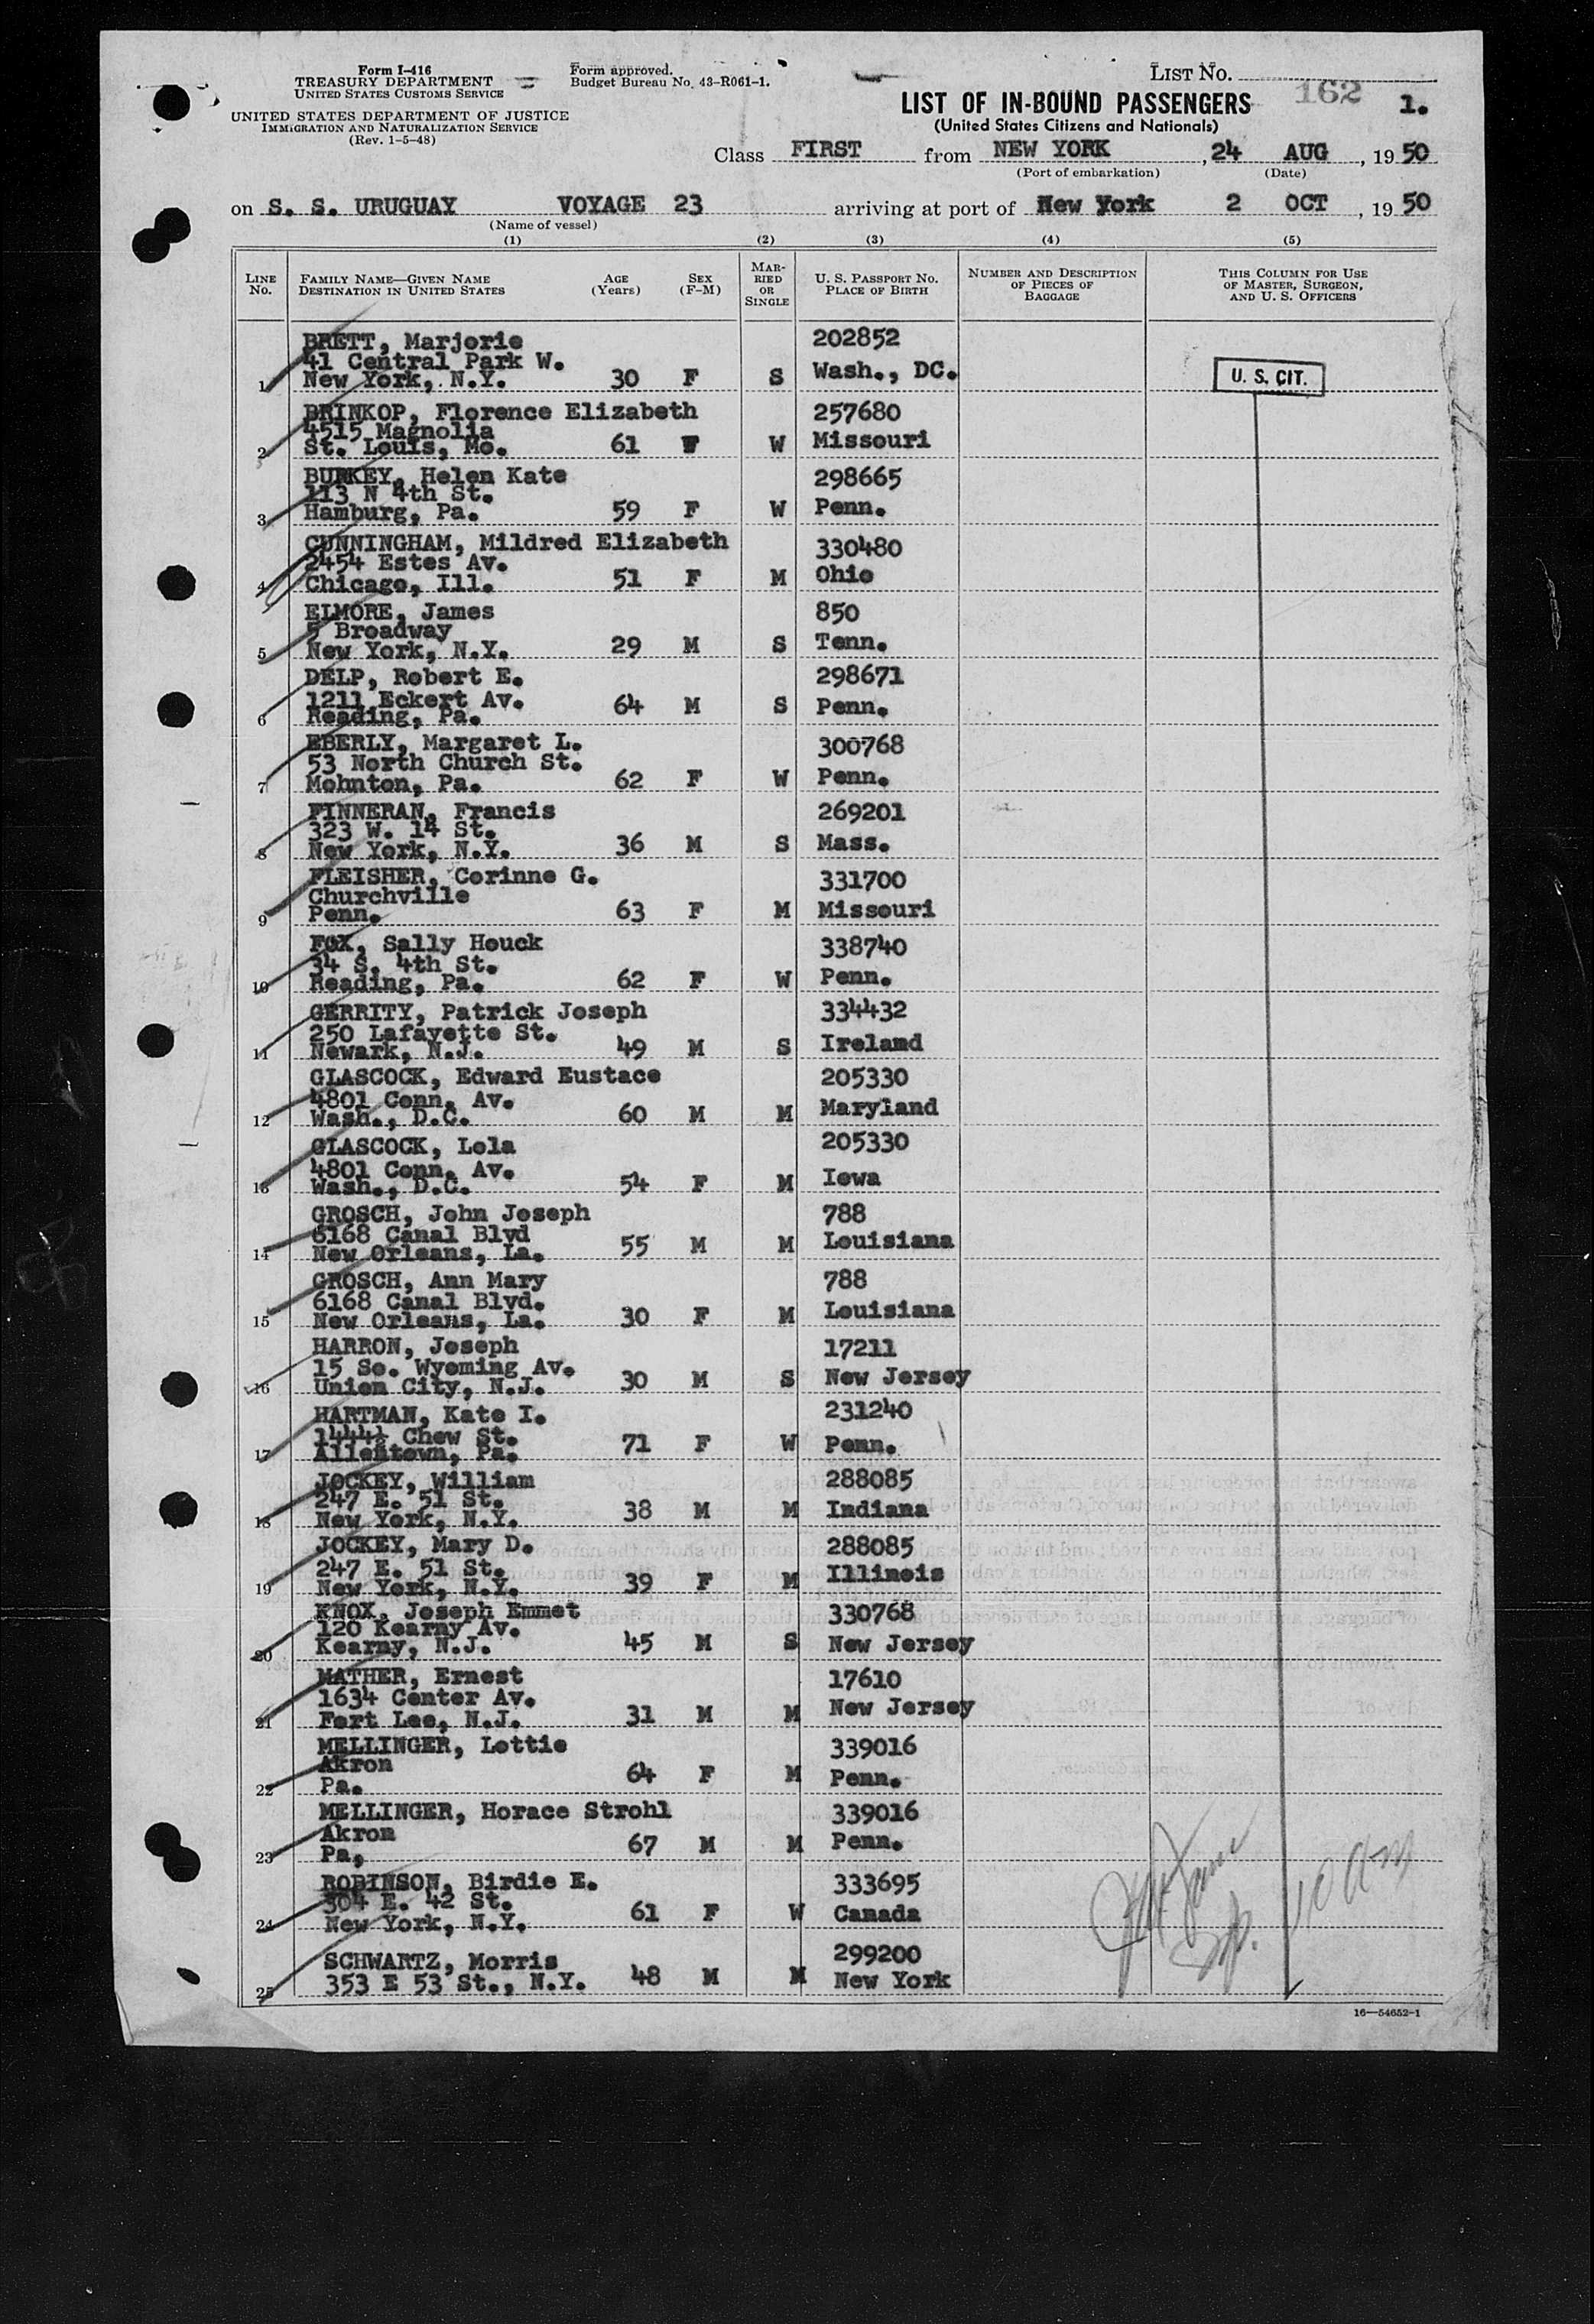 Form I-416
TREASURY DEPARTMENT
UNITED STATES CUSTOMS SERVICE
UNITED STATES DEPARTMENT OF JUSTICE
IMMIGRATION AND NATURALIZATION SERVICE
(Rev. 1-5-48)
Form approved.
Budget Bureau No. 43-R061-1.
LIST NO.
162 1.
LIST OF IN-BOUND PASSENGERS
(United States Citizens and Nationals)
Class FIRST from NEW YORK, 24 AUG, 19 50
(Port of embarkation) (Date)
on S. S. URUGUAY VOYAGE 23 arriving at port of New York 2 OCT, 19 50
(Name of vessel)
(1) (2) (3) (4) (5)
LINE NO. FAMILY NAME—GIVEN NAME DESTINATION IN UNITED STATES AGE (Years) SEX (F-M) MARRIED OR SINGLE U. S. PASSPORT NO. PLACE OF BIRTH NUMBER AND DESCRIPTION OF PIECES OF BAGGAGE THIS COLUMN FOR USE OF MASTER, SURGEON, AND U. S. OFFICERS
BRETT, Marjorie 202852
41 Central Park W.
1 New York, N.Y. 30 F S Wash., DC. U. S. CIT.
BRINKOP, Florence Elizabeth 257680
4515 Magnolia
2 St. Louis, Mo. 61 F W Missouri
BURKEY, Helen Kate 298665
113 N 4th St.
3 Hamburg, Pa. 59 F W Penn.
CUNNINGHAM, Mildred Elizabeth 330480
2454 Estes Av.
4 Chicago, Ill. 51 F M Ohio
ELMORE, James 850
5 Broadway
5 New York, N.Y. 29 M S Tenn.
DELP, Robert E. 298671
1211 Eckert Av.
6 Reading, Pa. 64 M S Penn.
EBERLY, Margaret L. 300768
53 North Church St.
7 Mohnton, Pa. 62 F W Penn.
FINNERAN, Francis 269201
323 W. 14 St.
8 New York, N.Y. 36 M S Mass.
FLEISHER, Corinne G. 331700
Churchville
9 Penn. 63 F M Missouri
FOX, Sally Houck 338740
34 S. 4th St.
10 Reading, Pa. 62 F W Penn.
GERRITY, Patrick Joseph 334432
250 Lafayette St.
11 Newark, N.J. 49 M S Ireland
GLASCOCK, Edward Eustace 205330
4801 Conn. Av.
12 Wash., D.C. 60 M M Maryland
GLASCOCK, Lola 205330
4801 Conn. Av.
13 Wash., D.C. 54 F M Iowa
GROSCH, John Joseph 788
6168 Canal Blvd
14 New Orleans, La. 55 M M Louisiana
GROSCH, Ann Mary 788
6168 Canal Blvd.
15 New Orleans, La. 30 F M Louisiana
HARRON, Joseph 17211
15 So. Wyoming Av.
16 Union City, N.J. 30 M S New Jersey
HARTMAN, Kate I. 231240
1444½ Chew St.
17 Allentown, Pa. 71 F W Penn.
JOCKEY, William 288085
247 E. 51 St.
18 New York, N.Y. 38 M M Indiana
JOCKEY, Mary D. 288085
247 E. 51 St.
19 New York, N.Y. 39 F M Illinois
KNOX, Joseph Emmet 330768
120 Kearny Av.
20 Kearny, N.J. 45 M S New Jersey
MATHER, Ernest 17610
1634 Center Av.
21 Fort Lee, N.J. 31 M M New Jersey
MELLINGER, Lottie 339016
Akron
22 Pa. 64 F M Penn.
MELLINGER, Horace Strohl 339016
Akron
23 Pa, 67 M M Penn.
ROBINSON, Birdie E. 333695
304 E. 42 St.
24 New York, N.Y. 61 F W Canada
SCHWARTZ, Morris 299200
25 353 E 53 St., N.Y. 48 M M New York
16—54652-1